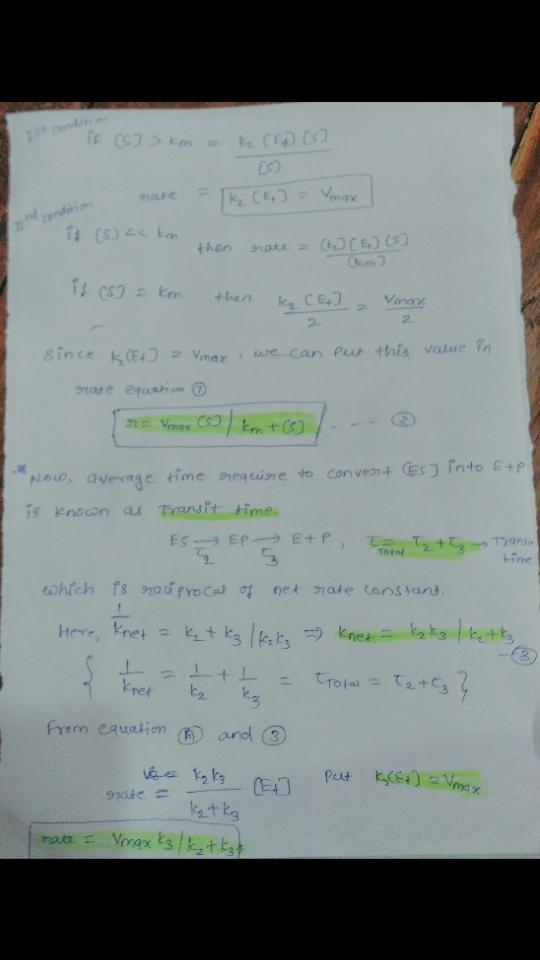 Ist condition
if (S) > km = k2 (Et) (S) / (S)
rate = k2 (Et) = Vmax
IInd condition
if (S) << km then rate = (k2) (Et) (S) / (km)
if (S) = km then k2 (Et) / 2 = Vmax / 2
Since k2(Et) = Vmax, we can put this value in
rate equation ①
r = Vmax (S) / km + (S) - - - - ②
* Now, average time require to convert (ES) into E+P
is known as Transit time.
ES → EP → E+P, τ = τ2 + τ3 → Transit
τ2 τ3 Total time
which is raciprocal of net rate constant.
Here, 1/knet = k2 + k3 / k2k3 ⇒ knet = k2k3 / k2+k3
- ③
{ 1/knet = 1/k2 + 1/k3 = τTotal = τ2 + τ3 }
From equation Ⓐ and ③
rate = k2k3 / k2+k3 [Et] Put k2(Et) = Vmax
rate = Vmax k3 / k2 + k3